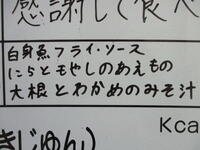 感謝して食べ
白身魚フライ・ソース
にらともやしのあえもの
大根とわかめのみそ汁
Kca
きじゅん)